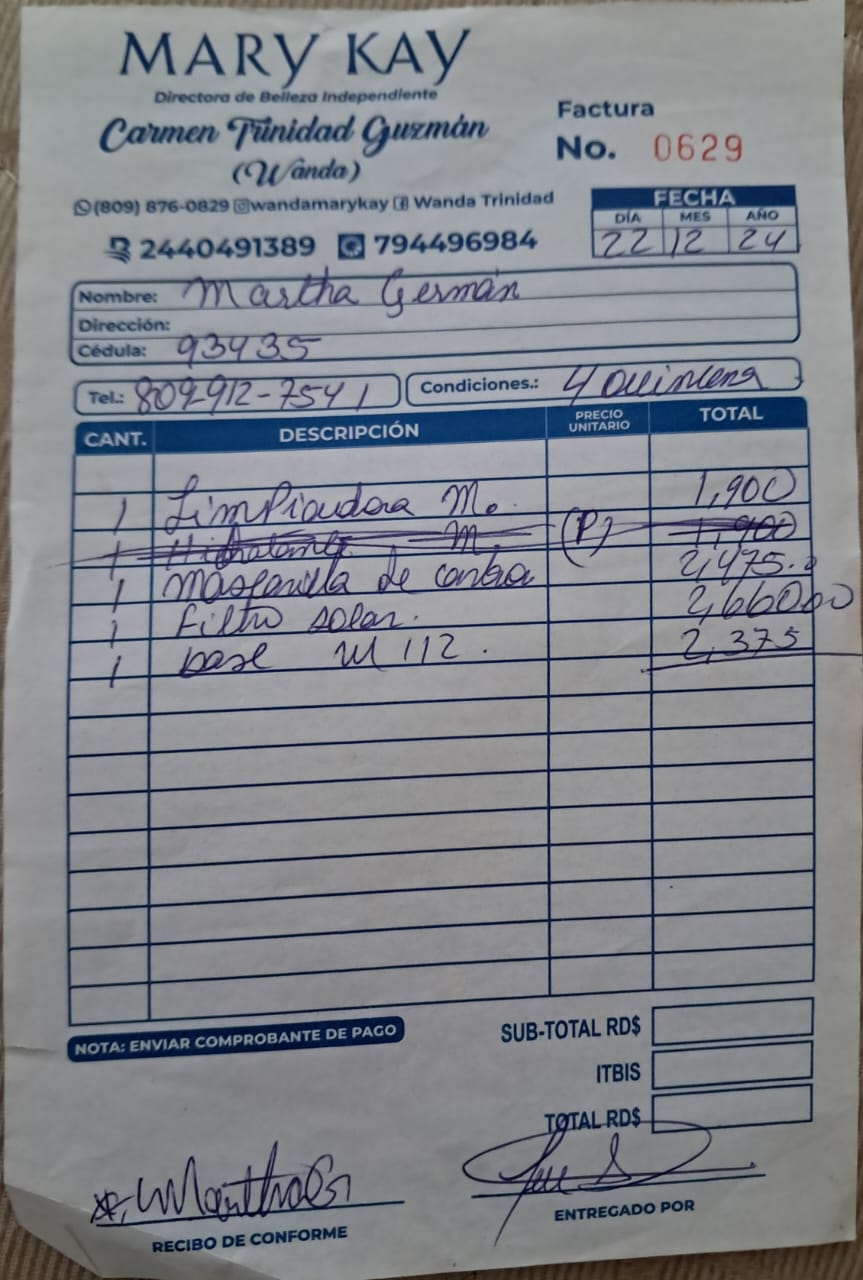 MARY KAY
Directora de Belleza Independiente
Carmen Trinidad Guzmán
(Wanda)
Factura
No. 0629
(809) 876-0829 wandamarykay Wanda Trinidad
2440491389 794496984
FECHA
DÍA MES AÑO
22 12 24
Nombre: Martha Germán
Dirección:
Cédula: 93435
Tel.: 809-912-7541 Condiciones.: 4 Quincena
CANT. DESCRIPCIÓN PRECIO UNITARIO TOTAL
1 Limpiadora M. 1,900
1 Hidratante M. (P) 1,900
1 Mascarilla de 2,475.0
1 Filtro solar. 2,660.00
1 base M 112. 2,375
NOTA: ENVIAR COMPROBANTE DE PAGO
SUB-TOTAL RD$
ITBIS
TOTAL RD$
Martha G
RECIBO DE CONFORME
ENTREGADO POR